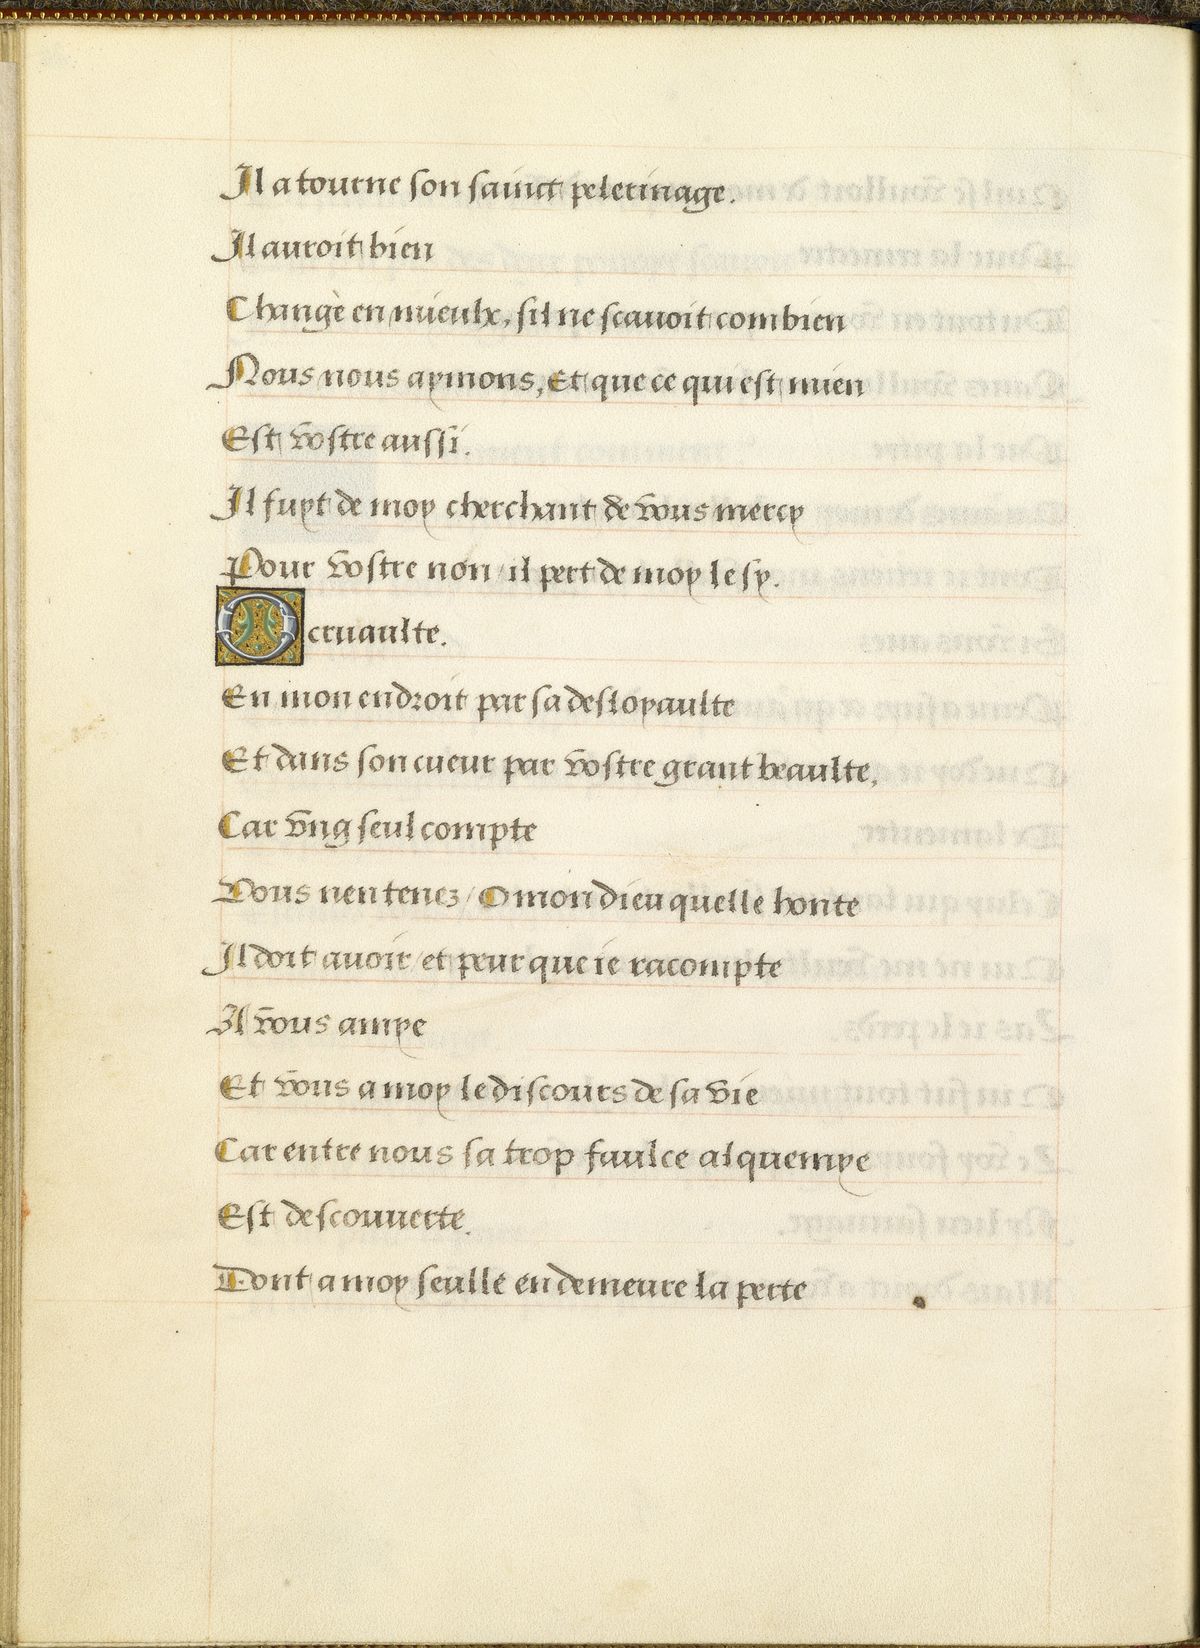 Il a tourne son sainct pelerinage.
Il auroit bien
Change en mieulx, sil ne scauoit combien
Nous nous aymons, Et que ce qui est mien
Est vostre aussi.
Il fuyt de moy cherchant de vous mercy
Pour vostre non / il pert de moy le sy.
O cruaulte.
En mon endroit par sa desloyaulte
Et dans son cueur par vostre grant beaulte,
Car vng seul compte
Vous nen tenez / O mon dieu quelle honte
Il doit auoir / et peur que ie racompte
A vous amye
Et vous a moy le discours de sa vie
Car entre nous sa trop faulce alquemye
Est descouuerte.
Dont a moy seulle en demeure la perte